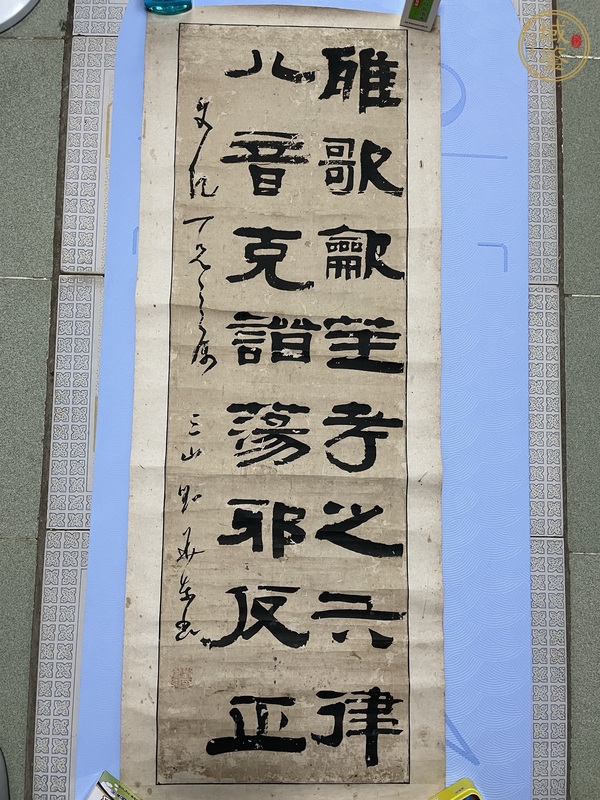 雅歌龡笙考之六律
八音克諧蕩邪反正
兄之属
三山 書